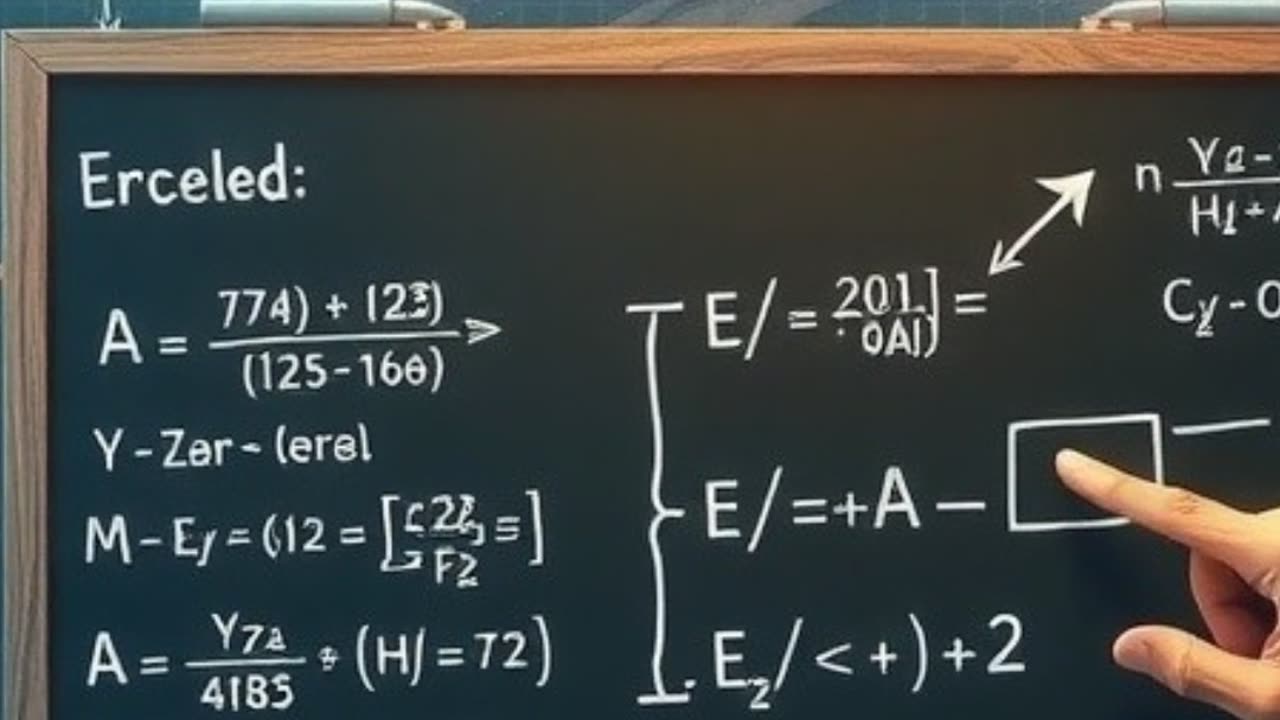 Erceled:
A = 774) + (123)
(125-166)
Y-Zar-(erel
M-Ey=(12=[
F2
A = Y7a
4185
(H/=72)
E/=201]=
0AI)
E/=+A-
E2/<+)+2
n Ya-
H1+
Cy-0